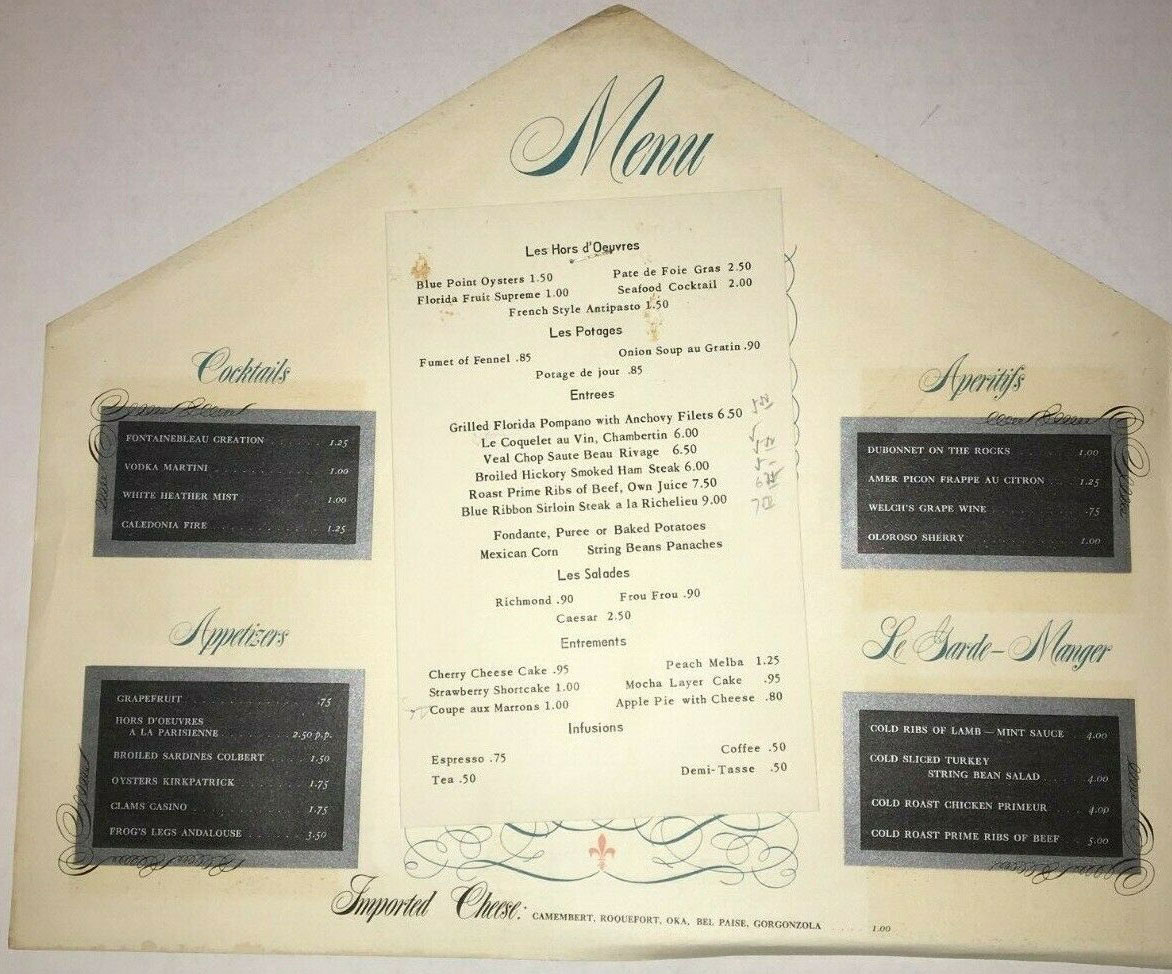 Menu
Les Hors d'Oeuvres
Blue Point Oysters 1.50
Pate de Foie Gras 2.50
Florida Fruit Supreme 1.00
Seafood Cocktail 2.00
French Style Antipasto 1.50
Les Potages
Fumet of Fennel .85
Onion Soup au Gratin .90
Potage de jour .85
Entrees
Grilled Florida Pompano with Anchovy Filets 6.50
Le Coquelet au Vin, Chambertin 6.00
Veal Chop Saute Beau Rivage 6.50
Broiled Hickory Smoked Ham Steak 6.00
Roast Prime Ribs of Beef, Own Juice 7.50
Blue Ribbon Sirloin Steak a la Richelieu 9.00
Fondante, Puree or Baked Potatoes
Mexican Corn String Beans Panaches
Les Salades
Richmond .90 Frou Frou .90
Caesar 2.50
Entrements
Cherry Cheese Cake .95
Peach Melba 1.25
Strawberry Shortcake 1.00
Mocha Layer Cake .95
Coupe aux Marrons 1.00
Apple Pie with Cheese .80
Infusions
Espresso .75
Coffee .50
Tea .50
Demi-Tasse .50
Cocktails
FONTAINEBLEAU CREATION 1.25
VODKA MARTINI 1.00
WHITE HEATHER MIST 1.00
CALEDONIA FIRE 1.25
Appetizers
GRAPEFRUIT .75
HORS D'OEUVRES
A LA PARISIENNE 2.50 p.p.
BROILED SARDINES COLBERT 1.50
OYSTERS KIRKPATRICK 1.75
CLAMS CASINO 1.75
FROG'S LEGS ANDALOUSE 3.50
Aperitifs
DUBONNET ON THE ROCKS 1.00
AMER PICON FRAPPE AU CITRON 1.25
WELCH'S GRAPE WINE .75
OLOROSO SHERRY 1.00
Le Garde-Manger
COLD RIBS OF LAMB — MINT SAUCE 4.00
COLD SLICED TURKEY
STRING BEAN SALAD 4.00
COLD ROAST CHICKEN PRIMEUR 4.00
COLD ROAST PRIME RIBS OF BEEF 5.00
Imported Cheese: CAMEMBERT, ROQUEFORT, OKA, BEL PAISE, GORGONZOLA 1.00